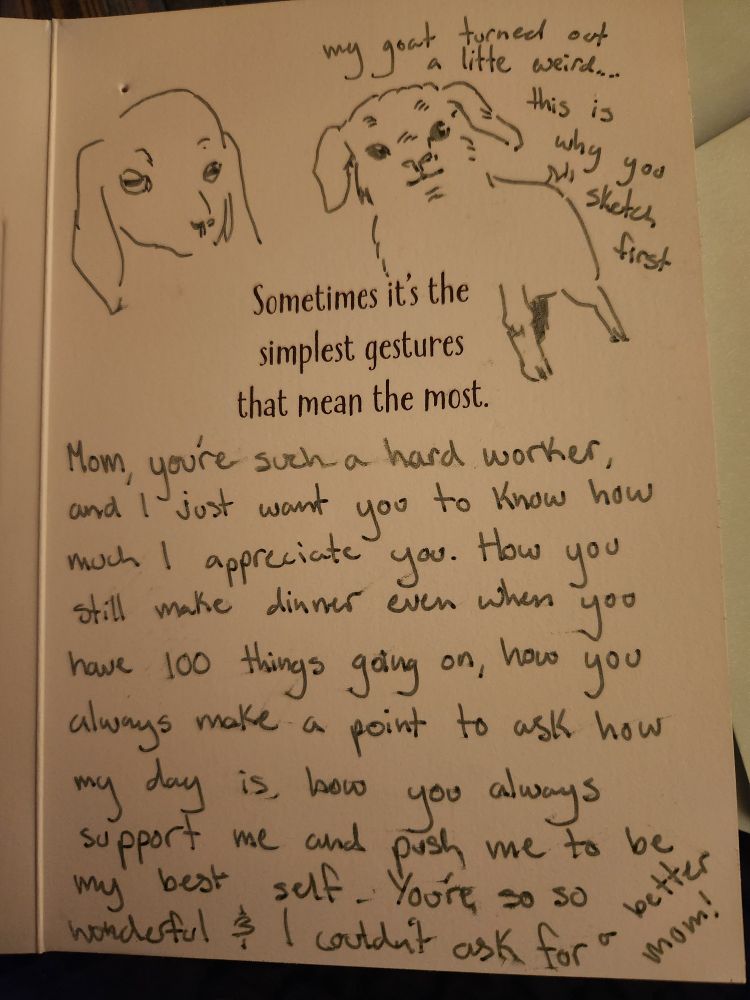 my goat turned out
a litte weird...
this is
why you
sketch
first
Sometimes it's the
simplest gestures
that mean the most.
Mom, you're such a hard worker,
and I just want you to know how
much I appreciate you. How you
still make dinner even when you
have 100 things going on, how you
always make a point to ask how
my day is, how you always
support me and push me to be
my best self. You're so so
wonderful & I couldn't ask for a better
mom!